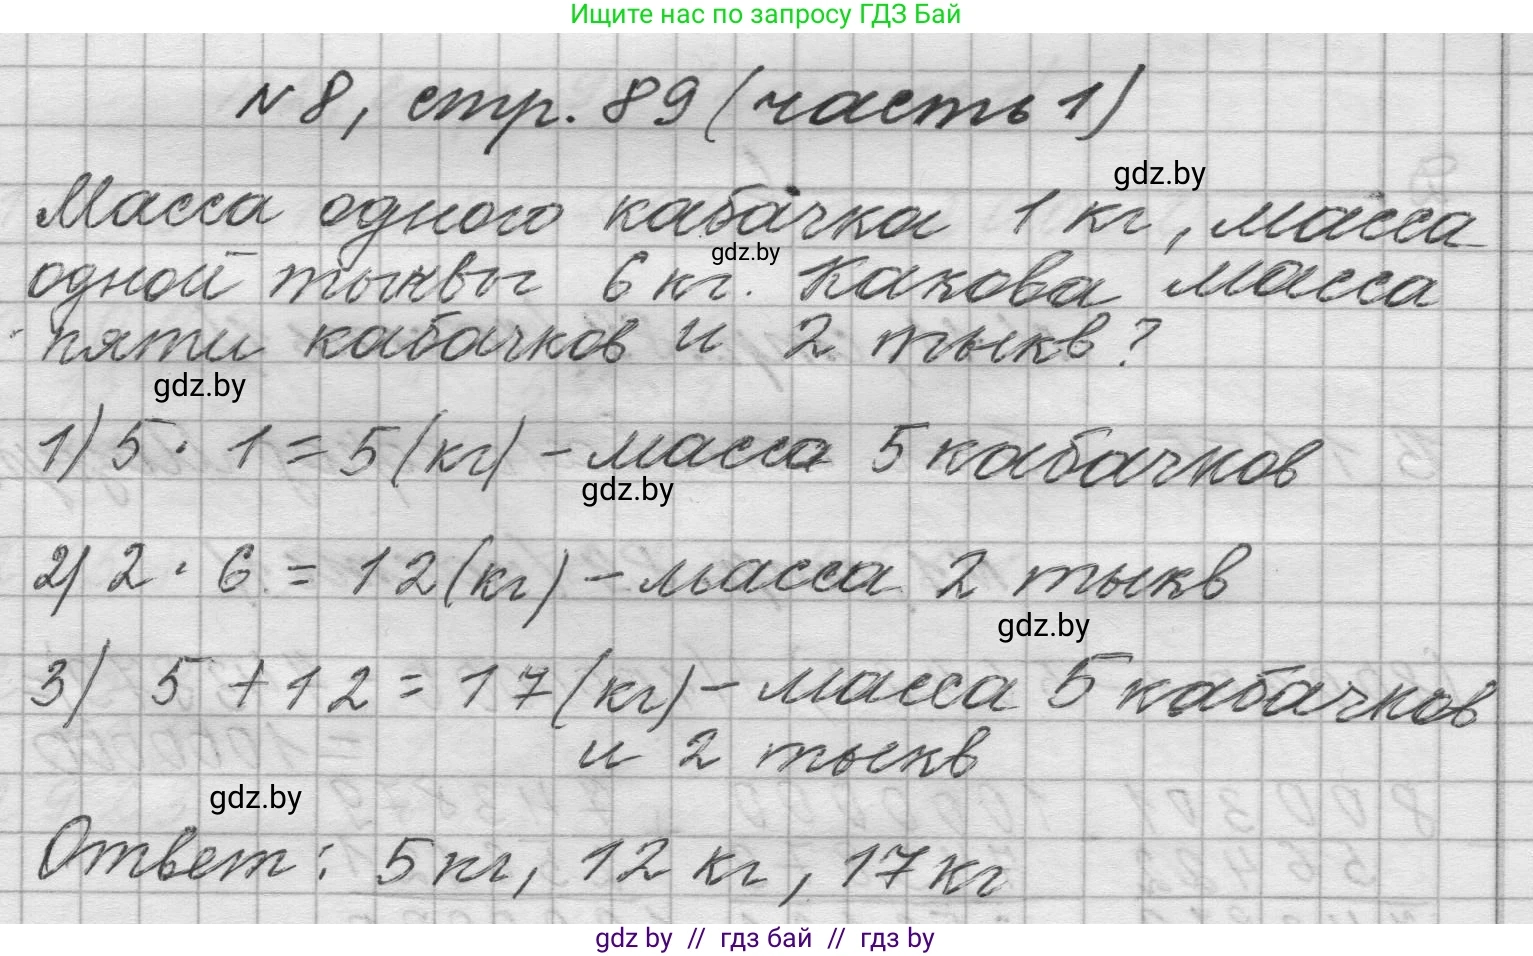 Ищите нас по запросу ГДЗ Бай
№8, стр. 89 (часть 1)
gdz.by
Масса одного кабачка 1 кг, масса
gdz.by
одной тыквы 6 кг. Какова масса
пяти кабачков и 2 тыкв?
gdz.by
1) 5 · 1 = 5 (кг) - масса 5 кабачков
gdz.by
2) 2 · 6 = 12 (кг) - масса 2 тыкв
gdz.by
3) 5 + 12 = 17 (кг) - масса 5 кабачков
и 2 тыкв
gdz.by
Ответ: 5 кг, 12 кг, 17 кг
gdz by // гдз бай // гдз by